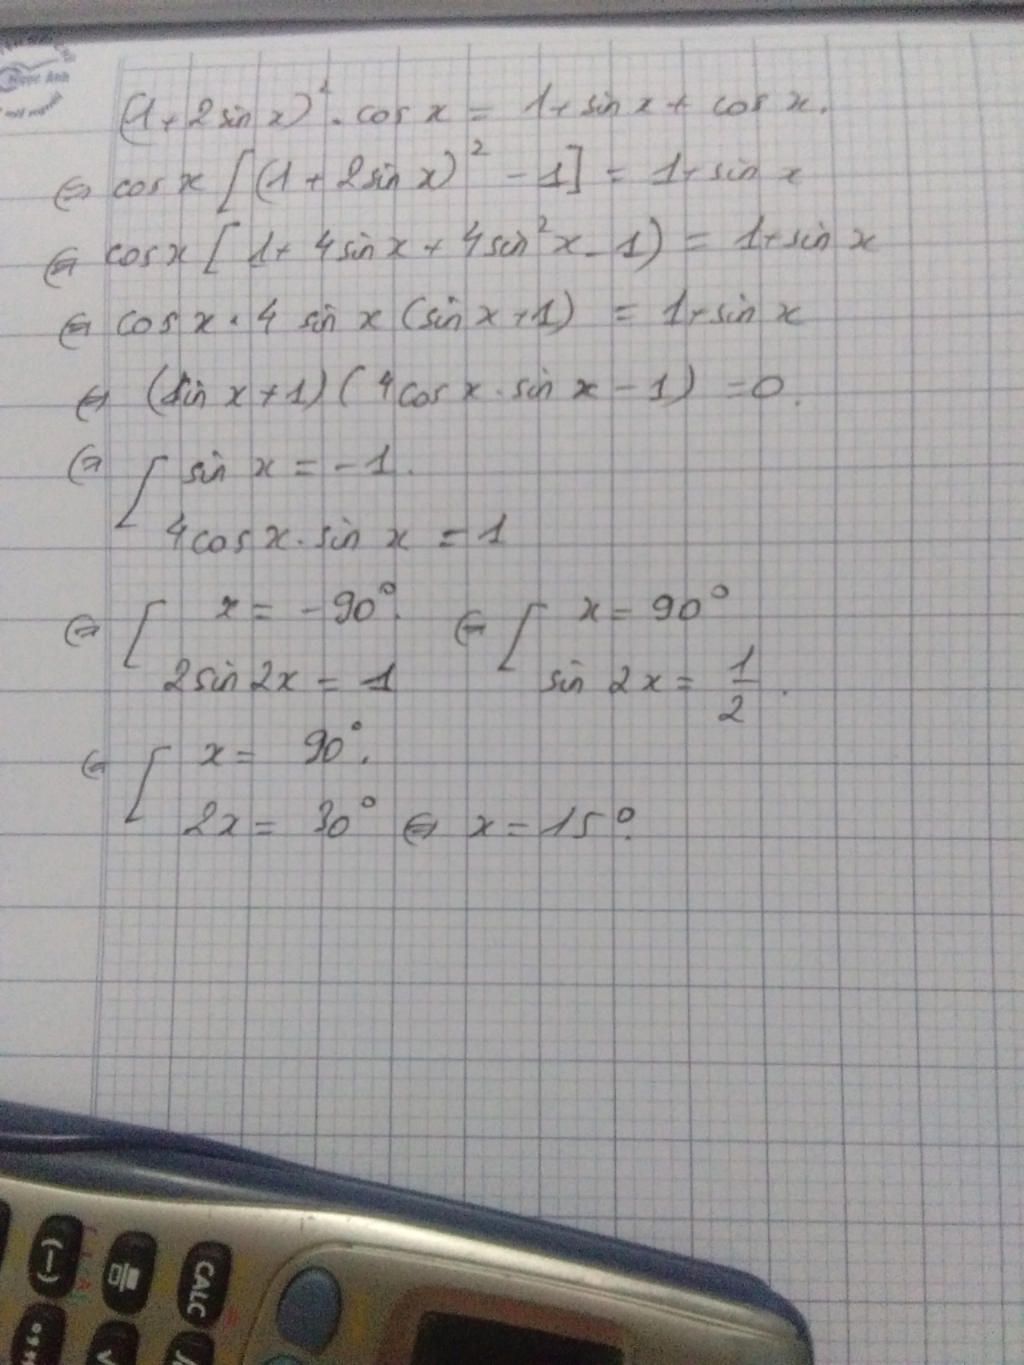 Ngọc Anh
(1+2sin x)² . cos x = 1+sin x + cos x.
⇔ cos x [(1+2sin x)² - 1] = 1+sin x
⇔ cos x [1+ 4sin x + 4sin²x - 1) = 1+sin x
⇔ cos x . 4 sin x (sin x +1) = 1+sin x
⇔ (sin x +1) (4cos x . sin x - 1) = 0.
⇔ [ sin x = -1.
4cos x . sin x = 1
⇔ [ x = -90°. ⇔ [ x = 90°
2sin 2x = 1 sin 2x = 1/2 .
⇔ [ x = 90°.
2x = 30° ⇔ x = 15°.
(-)
CALC